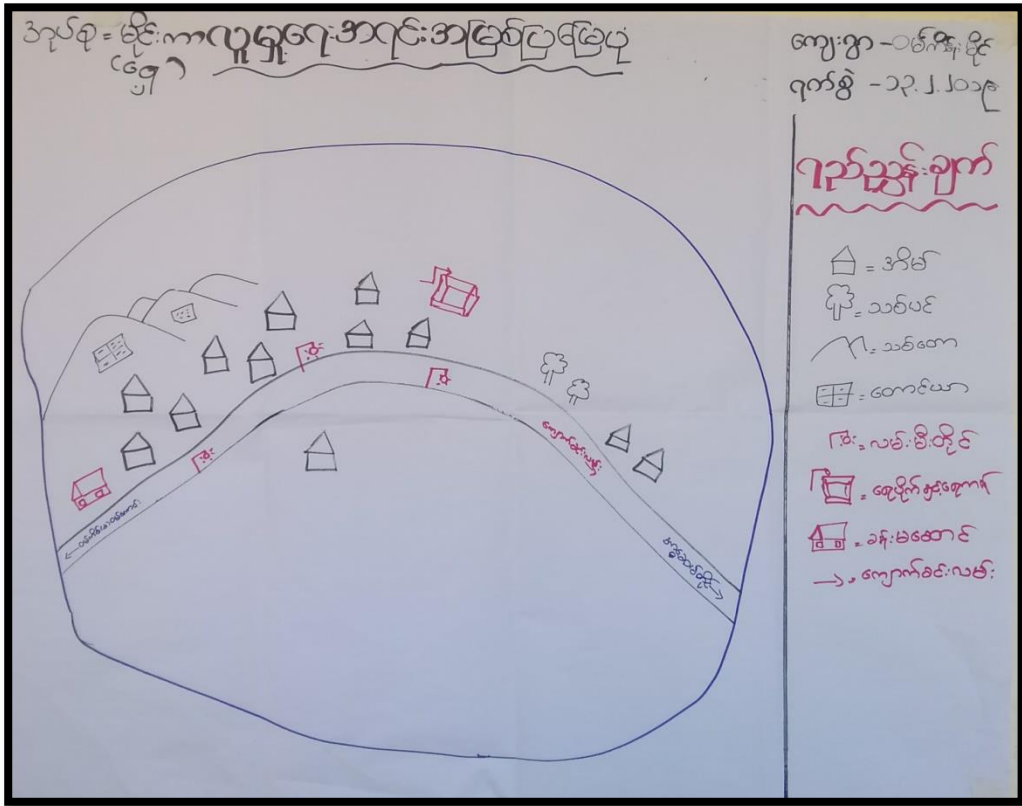 အုပ်စု = မိုင်းကာ လူမှုရေးအရင်းအမြစ်ပြမြေပုံ
ကျေးရွာ - ဝမ်ကိန်းမိုင်
ရက်စွဲ - ၁၃.၂.၂၀၁၉
ရည်ညွှန်းချက်
= အိမ်
= သစ်ပင်
= သစ်တော
= တောင်ယာ
= လမ်းမီးတိုင်
= ရေပိုက်နှင့်ရေကန်
= ခန်းမဆောင်
→ = ကျောက်ခင်းလမ်း
ကျောက်ခင်းလမ်း